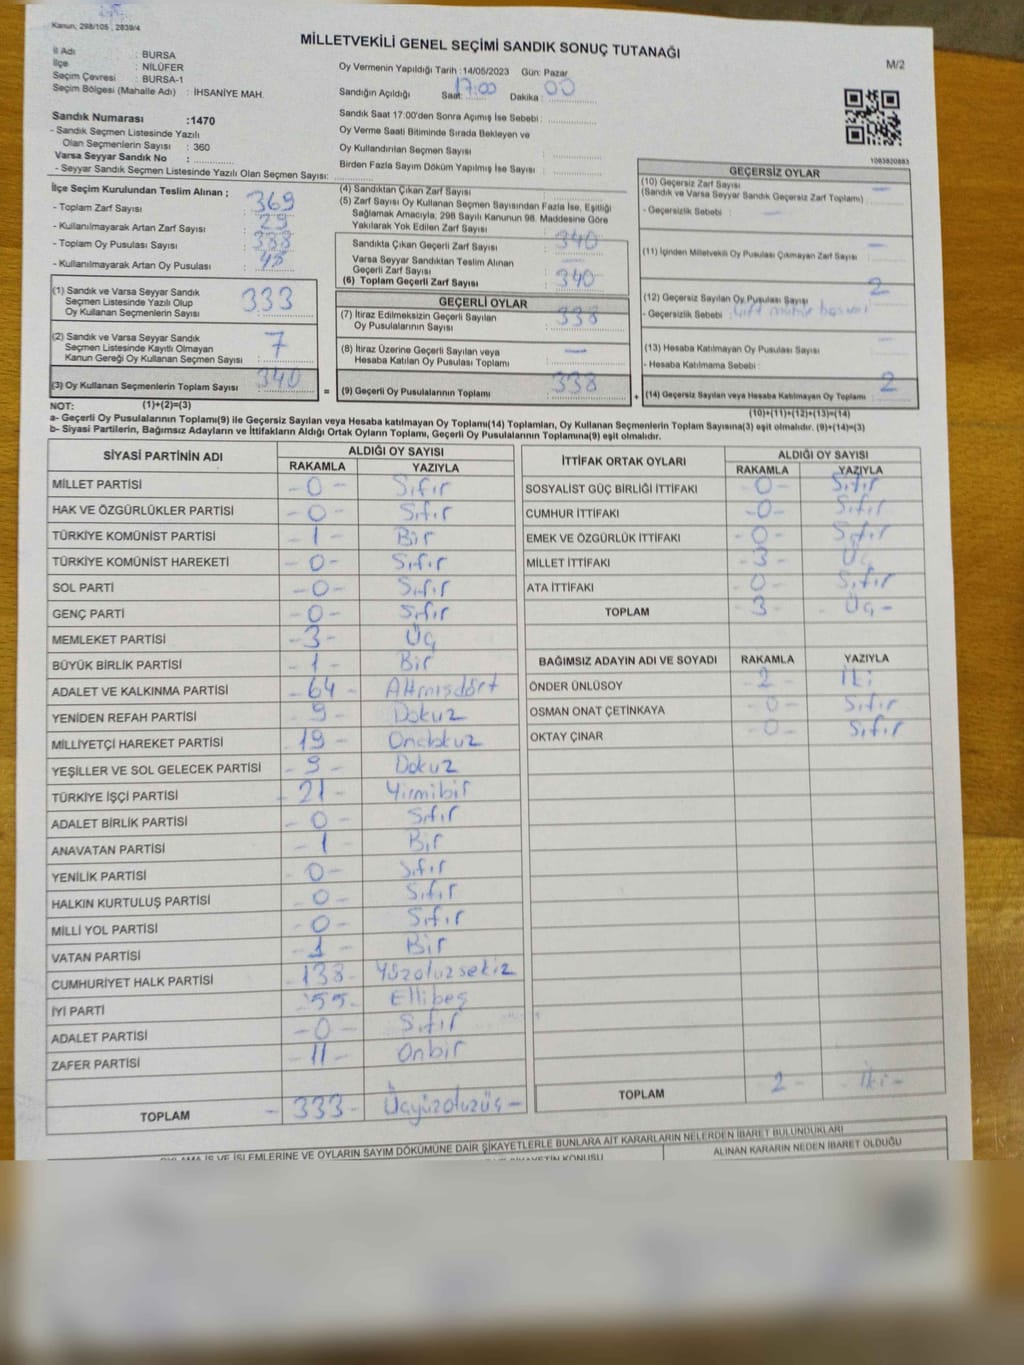 Kanun, 298/105 , 2839/4
MİLLETVEKİLİ GENEL SEÇİMİ SANDIK SONUÇ TUTANAĞI
M/2
İl Adı : BURSA
İlçe : NİLÜFER
Seçim Çevresi : BURSA-1
Seçim Bölgesi (Mahalle Adı) : İHSANİYE MAH.
Oy Vermenin Yapıldığı Tarih : 14/05/2023 Gün: Pazar
Sandığın Açıldığı Saat: 17:00 Dakika : 00
Sandık Saat 17:00'den Sonra Açımış İse Sebebi :
Oy Verme Saati Bitiminde Sırada Bekleyen ve
Oy Kullandırılan Seçmen Sayısı :
Birden Fazla Sayım Döküm Yapılmış İse Sayısı :
Sandık Numarası :1470
- Sandık Seçmen Listesinde Yazılı
Olan Seçmenlerin Sayısı : 360
Varsa Seyyar Sandık No :
- Seyyar Sandık Seçmen Listesinde Yazılı Olan Seçmen Sayısı:
1083820883
İlçe Seçim Kurulundan Teslim Alınan ;
- Toplam Zarf Sayısı : 369
- Kullanılmayarak Artan Zarf Sayısı : 29
- Toplam Oy Pusulası Sayısı :
- Kullanılmayarak Artan Oy Pusulası :
(1) Sandık ve Varsa Seyyar Sandık
Seçmen Listesinde Yazılı Olup
Oy Kullanan Seçmenlerin Sayısı : 333
(2) Sandık ve Varsa Seyyar Sandık
Seçmen Listesinde Kayıtlı Olmayan
Kanun Gereği Oy Kullanan Seçmen Sayısı : 7
(3) Oy Kullanan Seçmenlerin Toplam Sayısı : 340
(4) Sandıktan Çıkan Zarf Sayısı
(5) Zarf Sayısı Oy Kullanan Seçmen Sayısından Fazla İse, Eşitliği
Sağlamak Amacıyla, 298 Sayılı Kanunun 98. Maddesine Göre
Yakılarak Yok Edilen Zarf Sayısı :
Sandıkta Çıkan Geçerli Zarf Sayısı : 340
Varsa Seyyar Sandıktan Teslim Alınan
Geçerli Zarf Sayısı :
(6) Toplam Geçerli Zarf Sayısı : 340
GEÇERLİ OYLAR
(7) İtiraz Edilmeksizin Geçerli Sayılan
Oy Pusulalarının Sayısı : 338
(8) İtiraz Üzerine Geçerli Sayılan veya
Hesaba Katılan Oy Pusulası Toplamı : —
= (9) Geçerli Oy Pusulalarının Toplamı : 338
GEÇERSİZ OYLAR
(10) Geçersiz Zarf Sayısı : —
(Sandık ve Varsa Seyyar Sandık Geçersiz Zarf Toplamı)
- Geçersizlik Sebebi : —
(11) İçinden Milletvekili Oy Pusulası Çıkmayan Zarf Sayısı : —
(12) Geçersiz Sayılan Oy Pusulası Sayısı : 2
- Geçersizlik Sebebi : Çift mühür
(13) Hesaba Katılmayan Oy Pusulası Sayısı : —
- Hesaba Katılmama Sebebi :
+ (14) Geçersiz Sayılan veya Hesaba Katılmayan Oy Toplamı : 2
NOT: (1)+(2)=(3)
(10)+(11)+(12)+(13)=(14)
a- Geçerli Oy Pusulalarının Toplamı(9) ile Geçersiz Sayılan veya Hesaba katılmayan Oy Toplamı(14) Toplamları, Oy Kullanan Seçmenlerin Toplam Sayısına(3) eşit olmalıdır. (9)+(14)=(3)
b- Siyasi Partilerin, Bağımsız Adayların ve İttifakların Aldığı Ortak Oyların Toplamı, Geçerli Oy Pusulalarının Toplamına(9) eşit olmalıdır.
SİYASİ PARTİNİN ADI ALDIĞI OY SAYISI
RAKAMLA YAZIYLA
MİLLET PARTİSİ -0- Sıfır
HAK VE ÖZGÜRLÜKLER PARTİSİ -0- Sıfır
TÜRKİYE KOMÜNİST PARTİSİ -1- Bir
TÜRKİYE KOMÜNİST HAREKETİ -0- Sıfır
SOL PARTİ -0- Sıfır
GENÇ PARTİ -0- Sıfır
MEMLEKET PARTİSİ -3- Üç
BÜYÜK BİRLİK PARTİSİ -1- Bir
ADALET VE KALKINMA PARTİSİ -64- Altmışdört
YENİDEN REFAH PARTİSİ -9- Dokuz
MİLLİYETÇİ HAREKET PARTİSİ -19- Ondokuz
YEŞİLLER VE SOL GELECEK PARTİSİ -9- Dokuz
TÜRKİYE İŞÇİ PARTİSİ -21- Yirmibir
ADALET BİRLİK PARTİSİ -0- Sıfır
ANAVATAN PARTİSİ -1 Bir
YENİLİK PARTİSİ -0- Sıfır
HALKIN KURTULUŞ PARTİSİ -0- Sıfır
MİLLİ YOL PARTİSİ -0- Sıfır
VATAN PARTİSİ -1- Bir
CUMHURİYET HALK PARTİSİ -138- Yüzotuzsekiz
İYİ PARTİ -55- Ellibeş
ADALET PARTİSİ -0- Sıfır
ZAFER PARTİSİ -11- Onbir
TOPLAM -333- Üçyüzotuzüç-
İTTİFAK ORTAK OYLARI ALDIĞI OY SAYISI
RAKAMLA YAZIYLA
SOSYALİST GÜÇ BİRLİĞİ İTTİFAKI -0- Sıfır
CUMHUR İTTİFAKI -0- Sıfır
EMEK VE ÖZGÜRLÜK İTTİFAKI -0- Sıfır
MİLLET İTTİFAKI -3- Üç
ATA İTTİFAKI -0- Sıfır
TOPLAM -3- Üç-
BAĞIMSIZ ADAYIN ADI VE SOYADI RAKAMLA YAZIYLA
ÖNDER ÜNLÜSOY -2- İki
OSMAN ONAT ÇETİNKAYA -0- Sıfır
OKTAY ÇINAR -0- Sıfır
TOPLAM 2- -İki-
İŞ VE İŞLEMLERİNE VE OYLARIN SAYIM DÖKÜMÜNE DAİR ŞİKAYETLERLE BUNLARA AİT KARARLARIN NELERDEN İBARET BULUNDUKLARI
KONUSU
ALINAN KARARIN NEDEN İBARET OLDUĞU